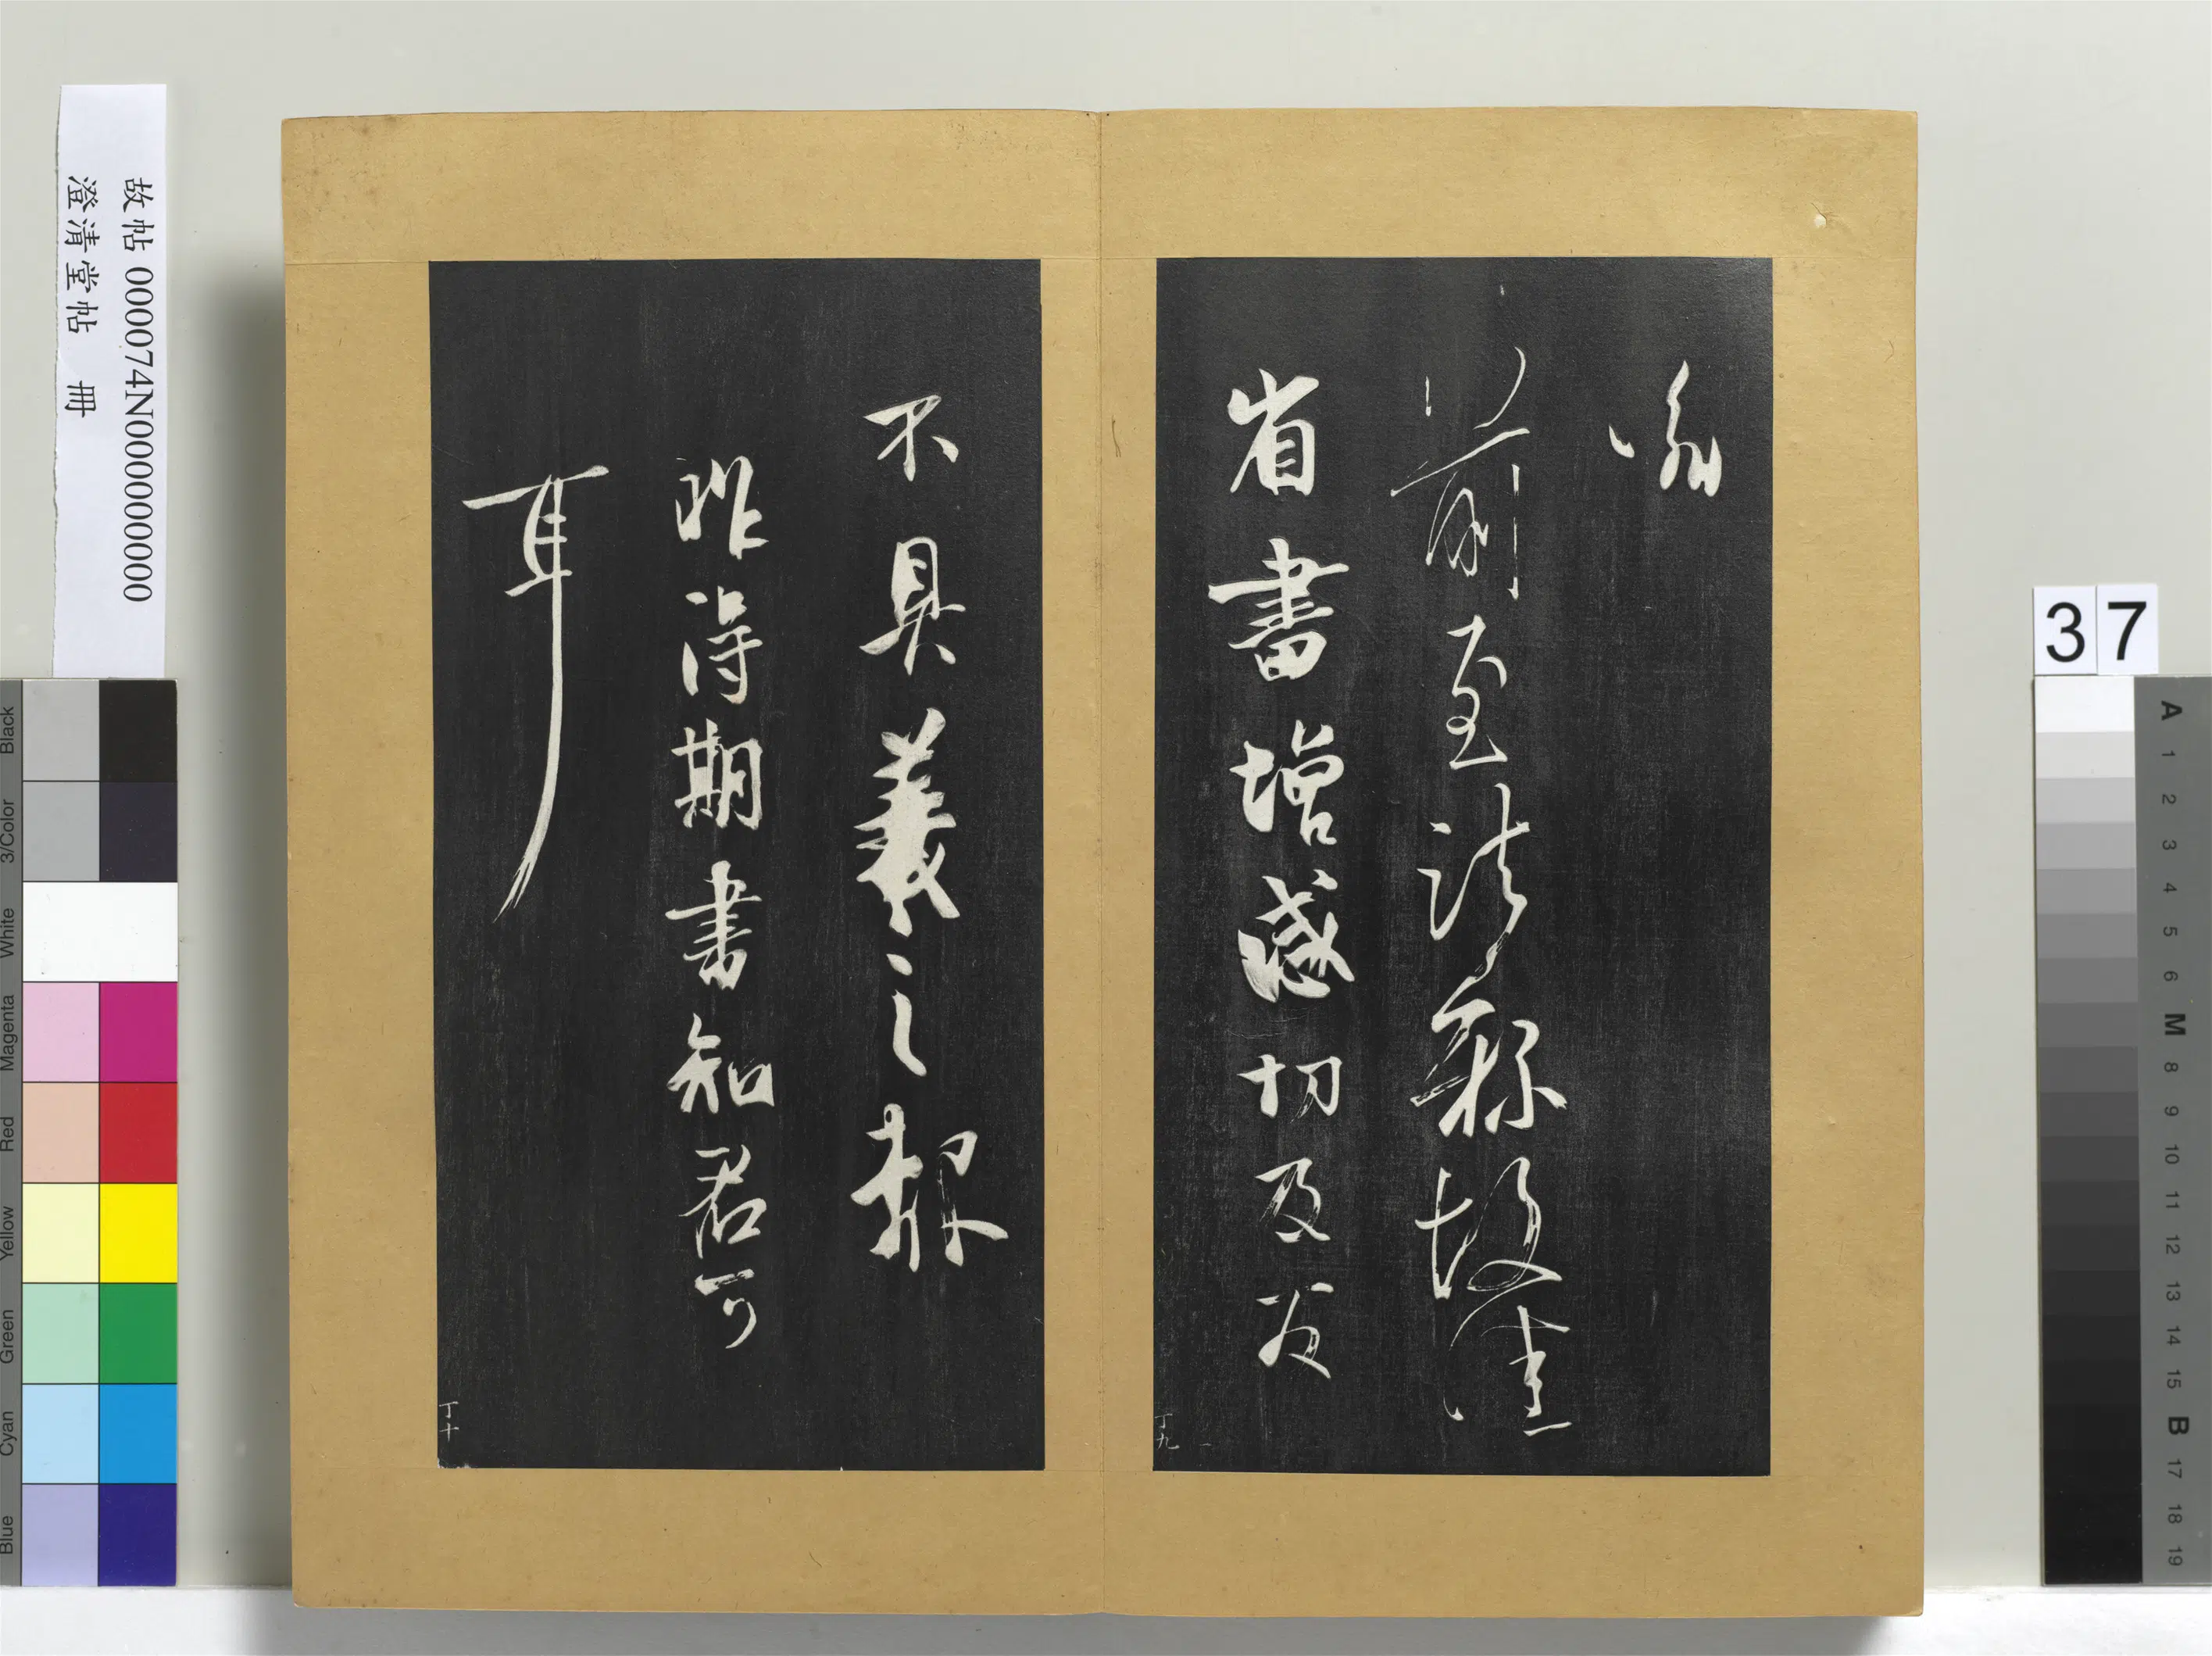 前至 故
省書增感切
丁九
不具羲之報
昨得期書知君可
耳
丁十
故帖 000074N000000000
澄清堂帖 冊
37
Black
3/Color
White
Magenta
Red
Yellow
Green
Cyan
Blue
A
1
2
3
4
5
6
M
8
9
10
11
12
13
14
15
B
17
18
19